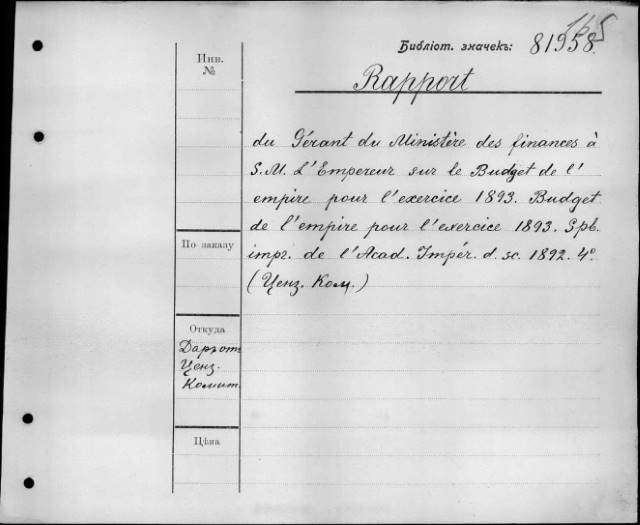 Библіот. значекъ: 81958.
Инв.
№
Rapport
du Gérant du Ministère des finances à
S. M. L'Empereur sur le Budget de l'
empire pour l'exercice 1893. Budget
de l'empire pour l'exercice 1893. Spb.
impr. de l'Acad. Impér. d. sc. 1892. 4º.
(Ценз. Ком.)
По заказу
Откуда
Даръ от
Ценз.
Комит.
Цѣна